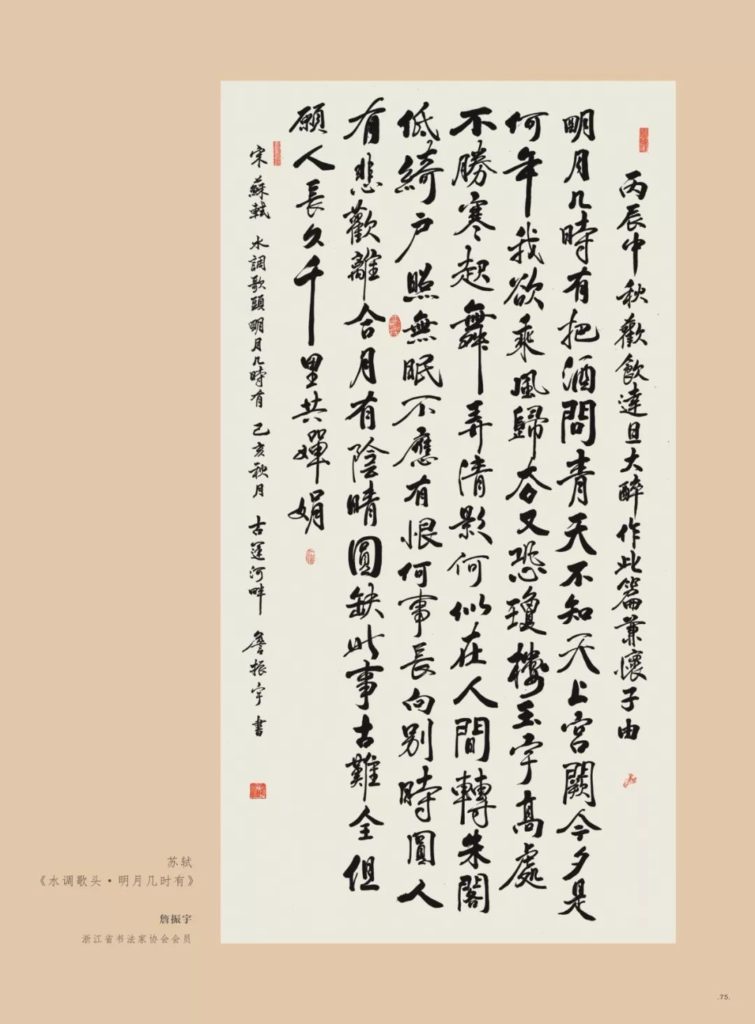 丙辰中秋歡飲達旦大醉作此篇兼懷子由
明月几時有把酒問青天不知天上宮闕今夕是
何年我欲乘風歸去又恐瓊樓玉宇高處
不勝寒起舞弄清影何似在人間轉朱閣
低綺户照無眠不應有恨何事長向别時圓人
有悲歡離合月有陰晴圓缺此事古難全但
願人長久千里共嬋娟
宋蘇軾 水調歌頭明月几時有 己亥秋月 古運河畔 詹振宇書
苏轼
《水调歌头·明月几时有》
詹振宇
浙江省书法家协会会员
.75.